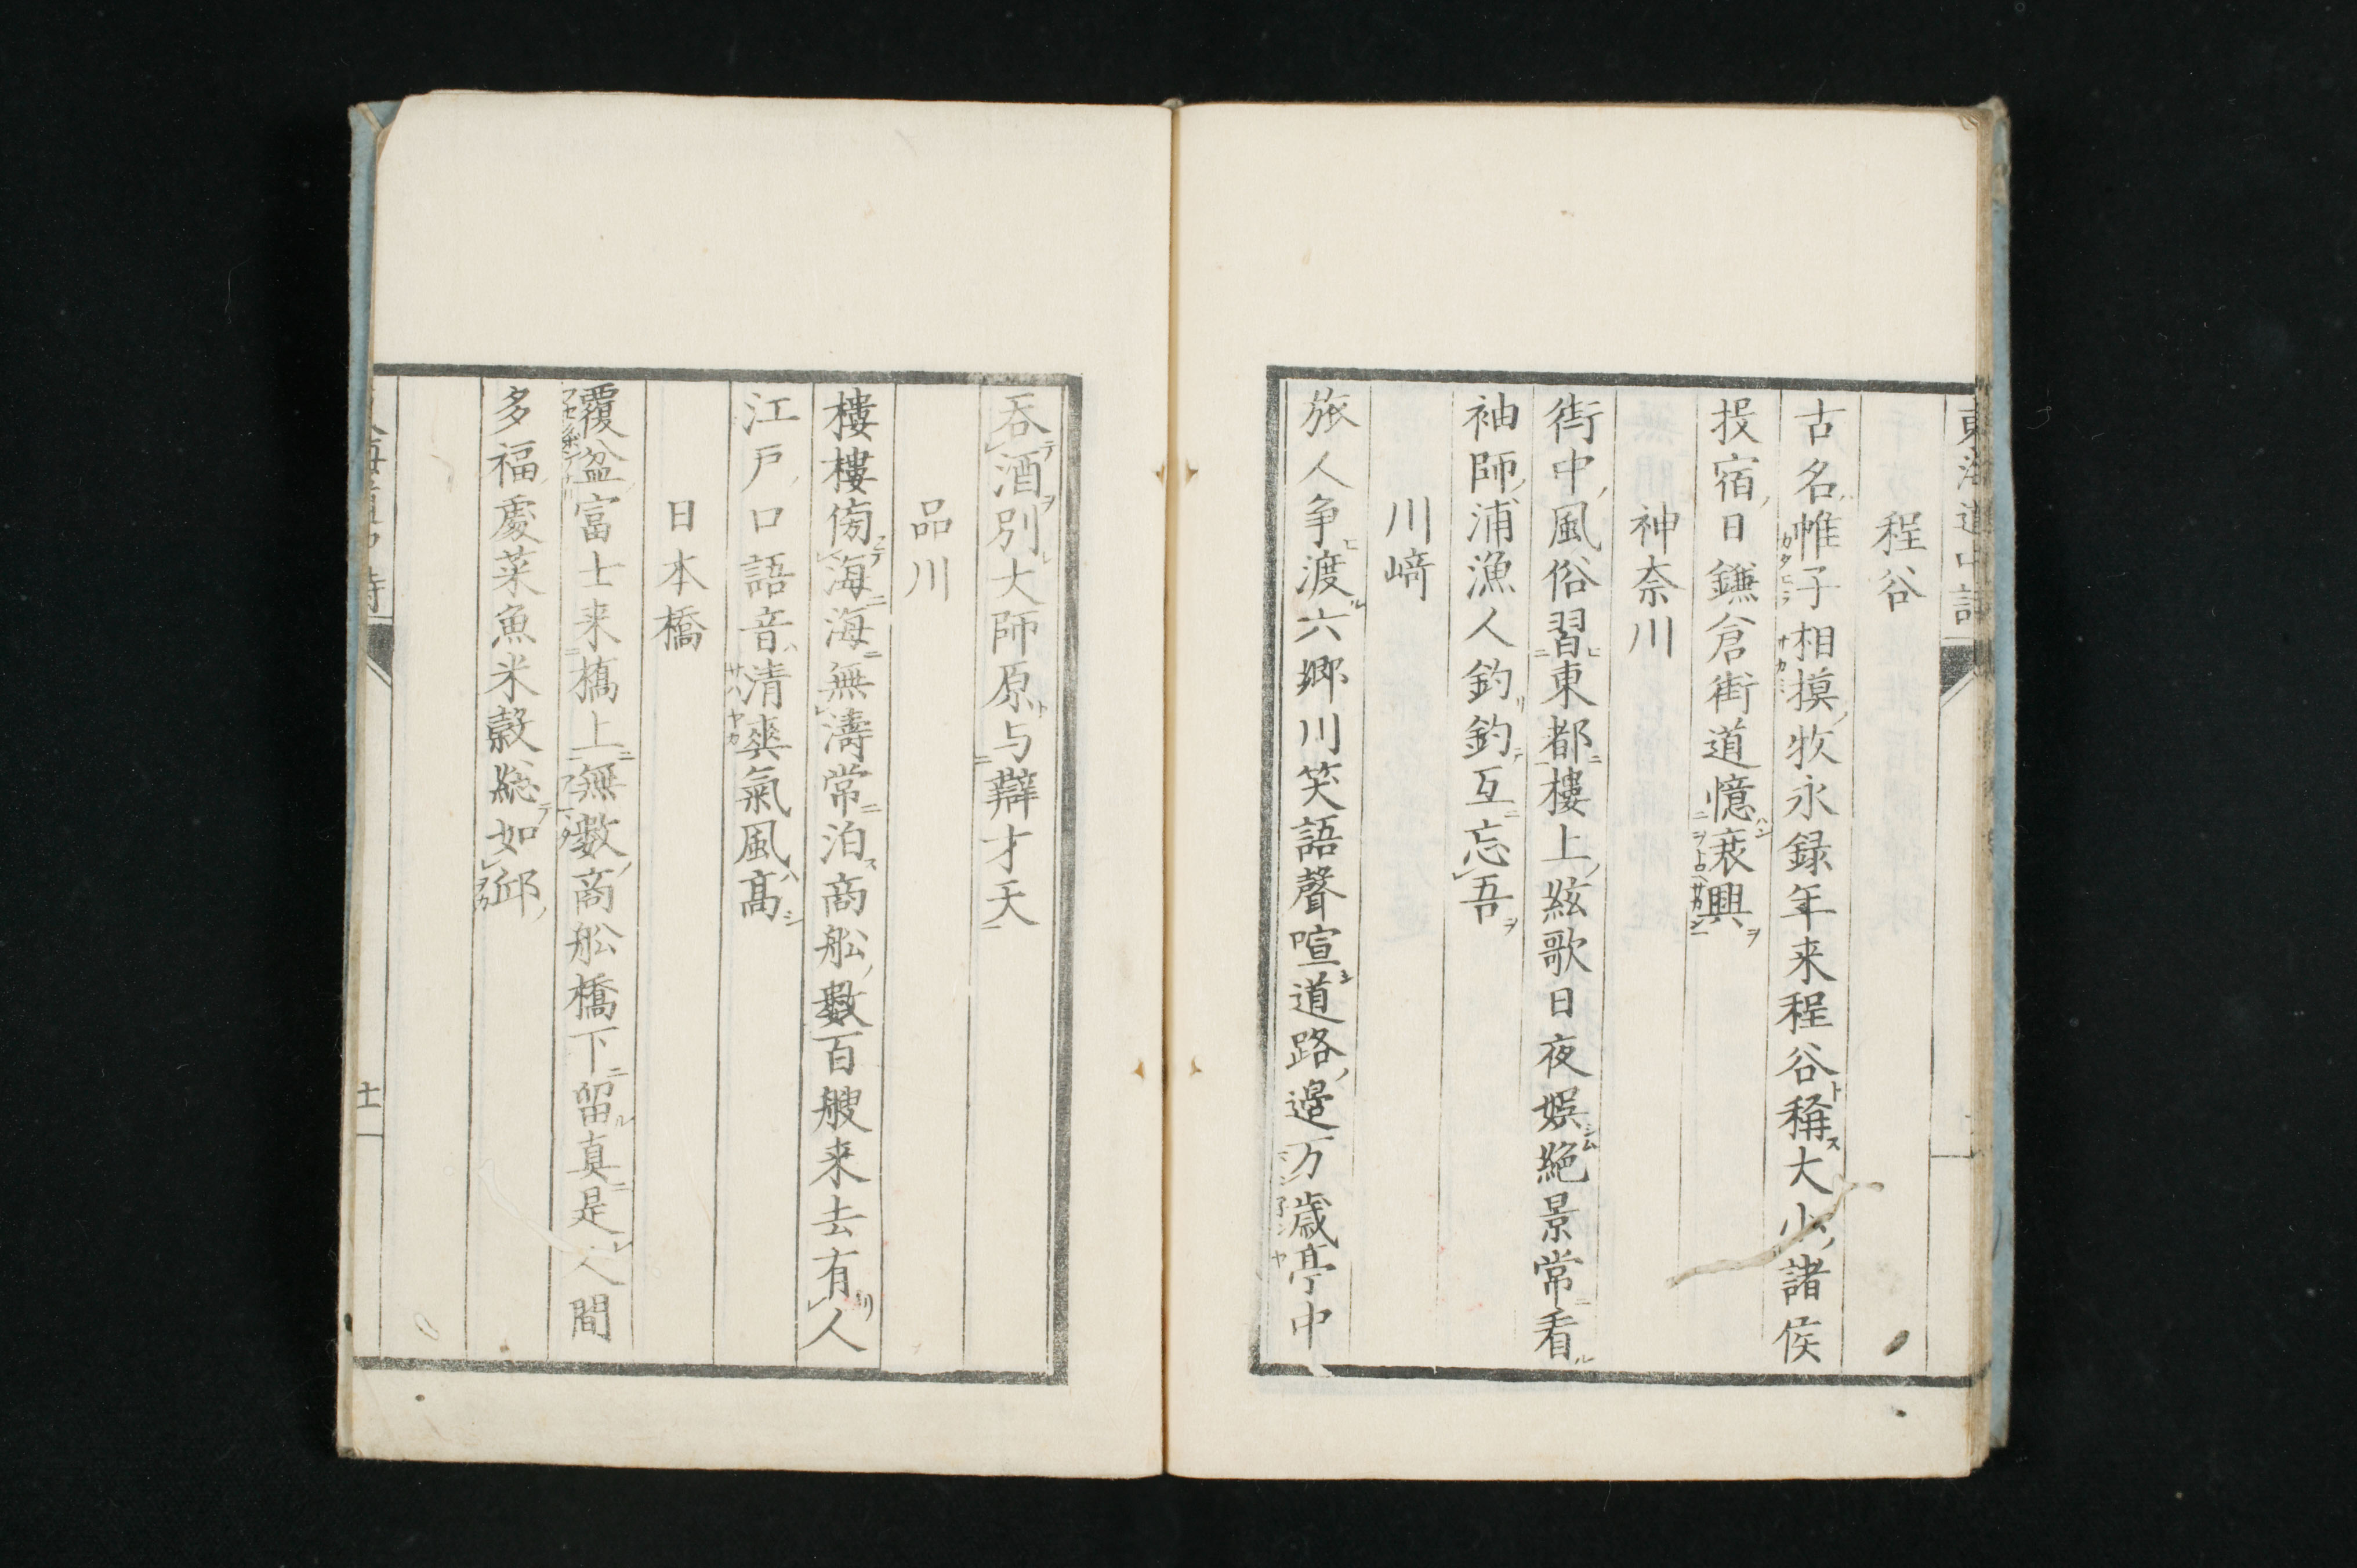 東海道中詩
程谷
古名帷子相摸牧永録年来程谷稱大小諸侯
投宿日鎌倉街道憶衰興
神奈川
街中風俗習東都樓上絃歌日夜娯絶景常看
袖師浦漁人釣釣互忘吾
川﨑
旅人争渡六郷川笑語聲喧道路邉万歳亭中
呑酒別大師原与辯才天
品川
樓樓傍海海無濤常泊商舩數百艘来去有人
江戸口語音清爽氣風髙
日本橋
覆盆富士来橋上無数商舩橋下留真是人間
多福處菜魚米穀総如邱
東海道中詩
十一